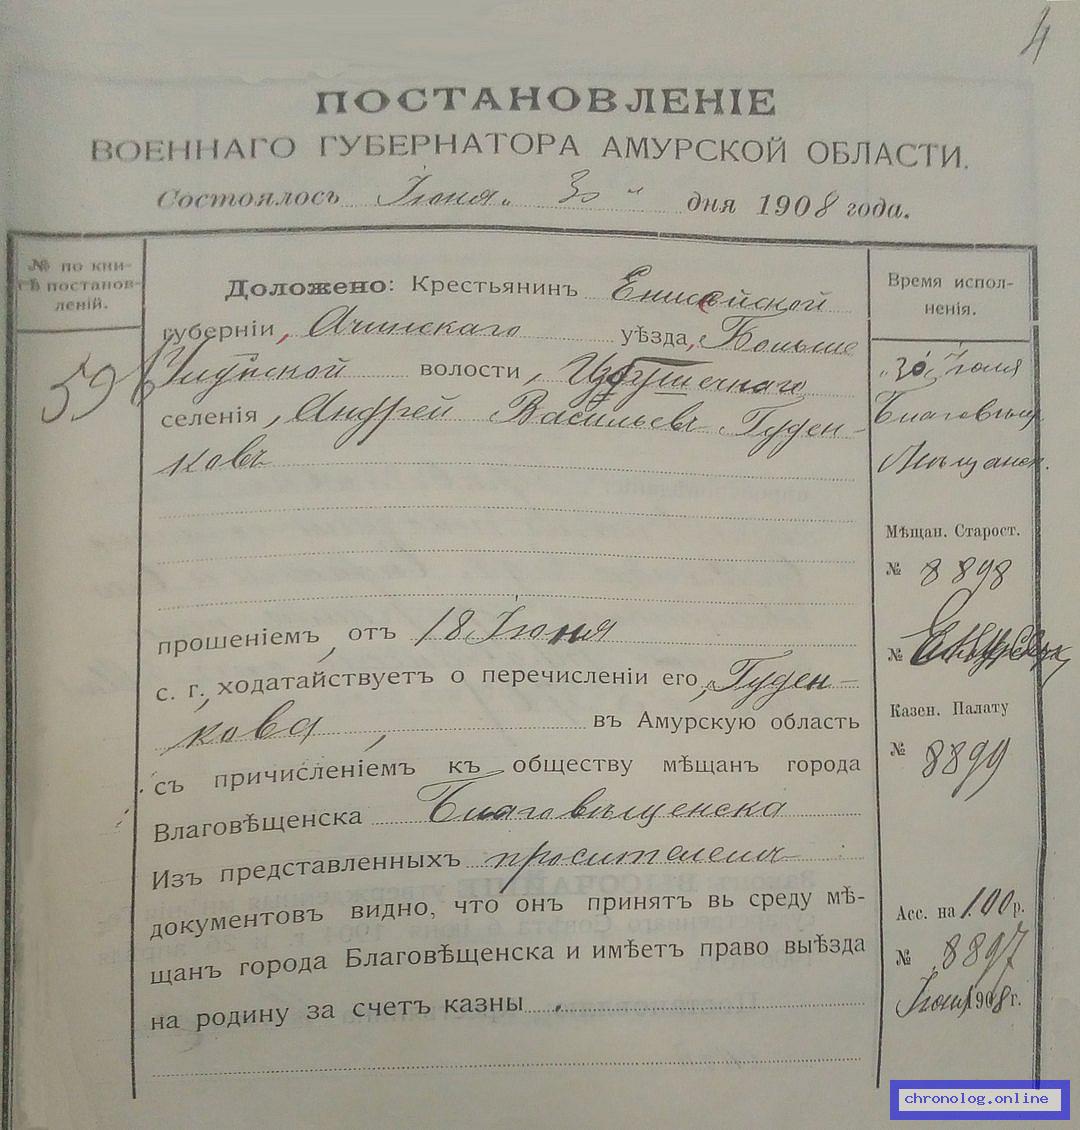 4
ПОСТАНОВЛЕНІЕ
ВОЕННАГО ГУБЕРНАТОРА АМУРСКОЙ ОБЛАСТИ.
Состоялось Іюня 30 дня 1908 года.
№ по кни-
гѣ постанов-
леній.
59
Доложено: Крестьянинъ Енисейской
губерніи, Ачинскаго уѣзда, Больше
Улуйской волости, селенія, Андрей Васильевъ Гуден-
ковъ
прошеніемъ, от 18 Іюня
с. г., ходатайствуетъ о перечисленіи его, Гуден-
кова, въ Амурскую область
съ причисленіемъ къ обществу мѣщанъ города
Благовѣщенска Благовѣщенска
Изъ представленныхъ просителемъ
документовъ видно, что онъ принятъ вь среду мѣ-
щанъ города Благовѣщенска и имѣетъ право выѣзда
на родину за счетъ казны.
Время испол-
ненія.
"30" Іюля
Благовѣщ.
Мѣщанск.
Мѣщан. Старост.
№ 8898
№
Казен. Палату
№ 8899
Асс. на 1.00 р.
№ 8897
1908 г.
chronolog.online